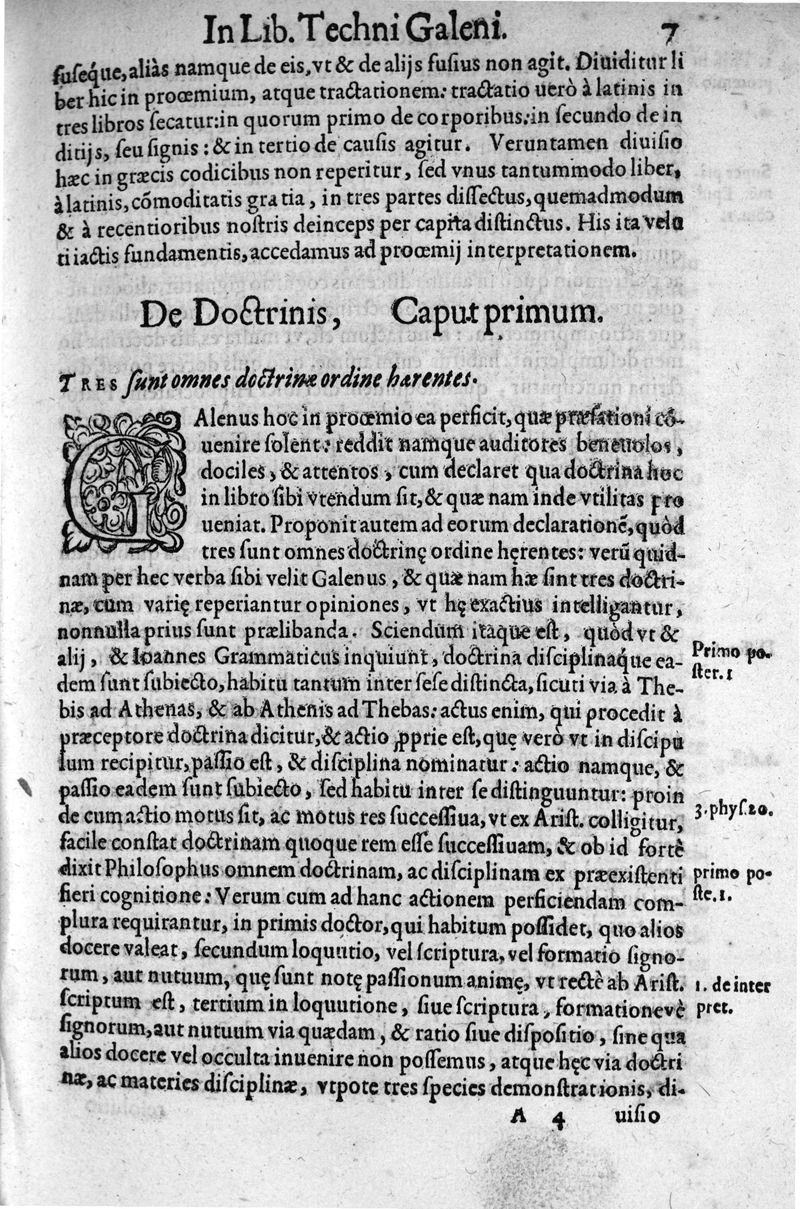 In Lib. Techni Galeni. 7
fuséque, aliàs namque de eis, vt & de alijs fusius non agit. Diuiditur li
ber hic in proœmium, atque tractationem: tractatio uerò à latinis in
tres libros secatur: in quorum primo de corporibus: in secundo de in
ditijs, seu signis: & in tertio de causis agitur. Veruntamen diuisio
hæc in græcis codicibus non reperitur, sed vnus tantummodo liber,
à latinis, cõmoditatis gratia, in tres partes dissectus, quemadmodum
& à recentioribus nostris deinceps per capita distinctus. His ita velu
ti iactis fundamentis, accedamus ad proœmij interpretationem.
De Doctrinis, Caput primum.
TRES sunt omnes doctrinæ ordine hærentes.
GAlenus hoc in proœmio ea perficit, quæ præfationi cõ
uenire solent: reddit namque auditores beneuolos,
dociles, & attentos, cum declaret qua doctrina hoc
in libro sibi vtendum sit, & quæ nam inde vtilitas pro
ueniat. Proponit autem ad eorum declarationẽ, quòd
tres sunt omnes doctrinę ordine hęrentes: verũ quid-
nam per hec verba sibi velit Galenus, & quæ nam hæ sint tres doctri-
næ, cum varię reperiantur opiniones, vt hę exactius intelligantur,
nonnulla prius sunt prælibanda. Sciendum itaque est, quòd vt &
alij, & Ioannes Grammaticus inquiunt, doctrina disciplináque ea-
Primo po-
ster. 1
dem sunt subiecto, habitu tantum inter sese distincta, sicuti via à The-
bis ad Athenas, & ab Athenis ad Thebas: actus enim, qui procedit à
præceptore doctrina dicitur, & actio ꝓprie est, quę vero vt in discipu
lum recipitur, passio est, & disciplina nominatur: actio namque, &
passio eadem sunt subiecto, sed habitu inter se distinguuntur: proin
de cum actio motus sit, ac motus res successiua, vt ex Arist. colligitur,
3. phys. 20.
facile constat doctrinam quoque rem esse successiuam, & ob id fortè
dixit Philosophus omnem doctrinam, ac disciplinam ex præexistenti
primo po-
ste. 1.
fieri cognitione: Verum cum ad hanc actionem perficiendam com-
plura requirantur, in primis doctor, qui habitum possidet, quo alios
docere valeat, secundum loquutio, vel scriptura, vel formatio signo-
rum, aut nutuum, quę sunt notę passionum animę, vt rectè ab Arist.
1. de inter
pret.
scriptum est, tertium in loquutione, siue scriptura, formationevè
signorum, aut nutuum via quædam, & ratio siue dispositio, sine qua
alios docere vel occulta inuenire non possemus, atque hęc via doctri
næ, ac materies disciplinæ, vtpote tres species demonstrationis, di-
A 4 uisio